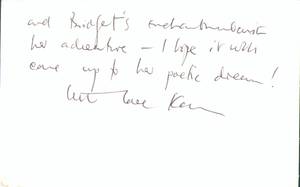 and Bridget's enchantment with
her adventure – I hope it will
come up to her poetic dream!
With love K